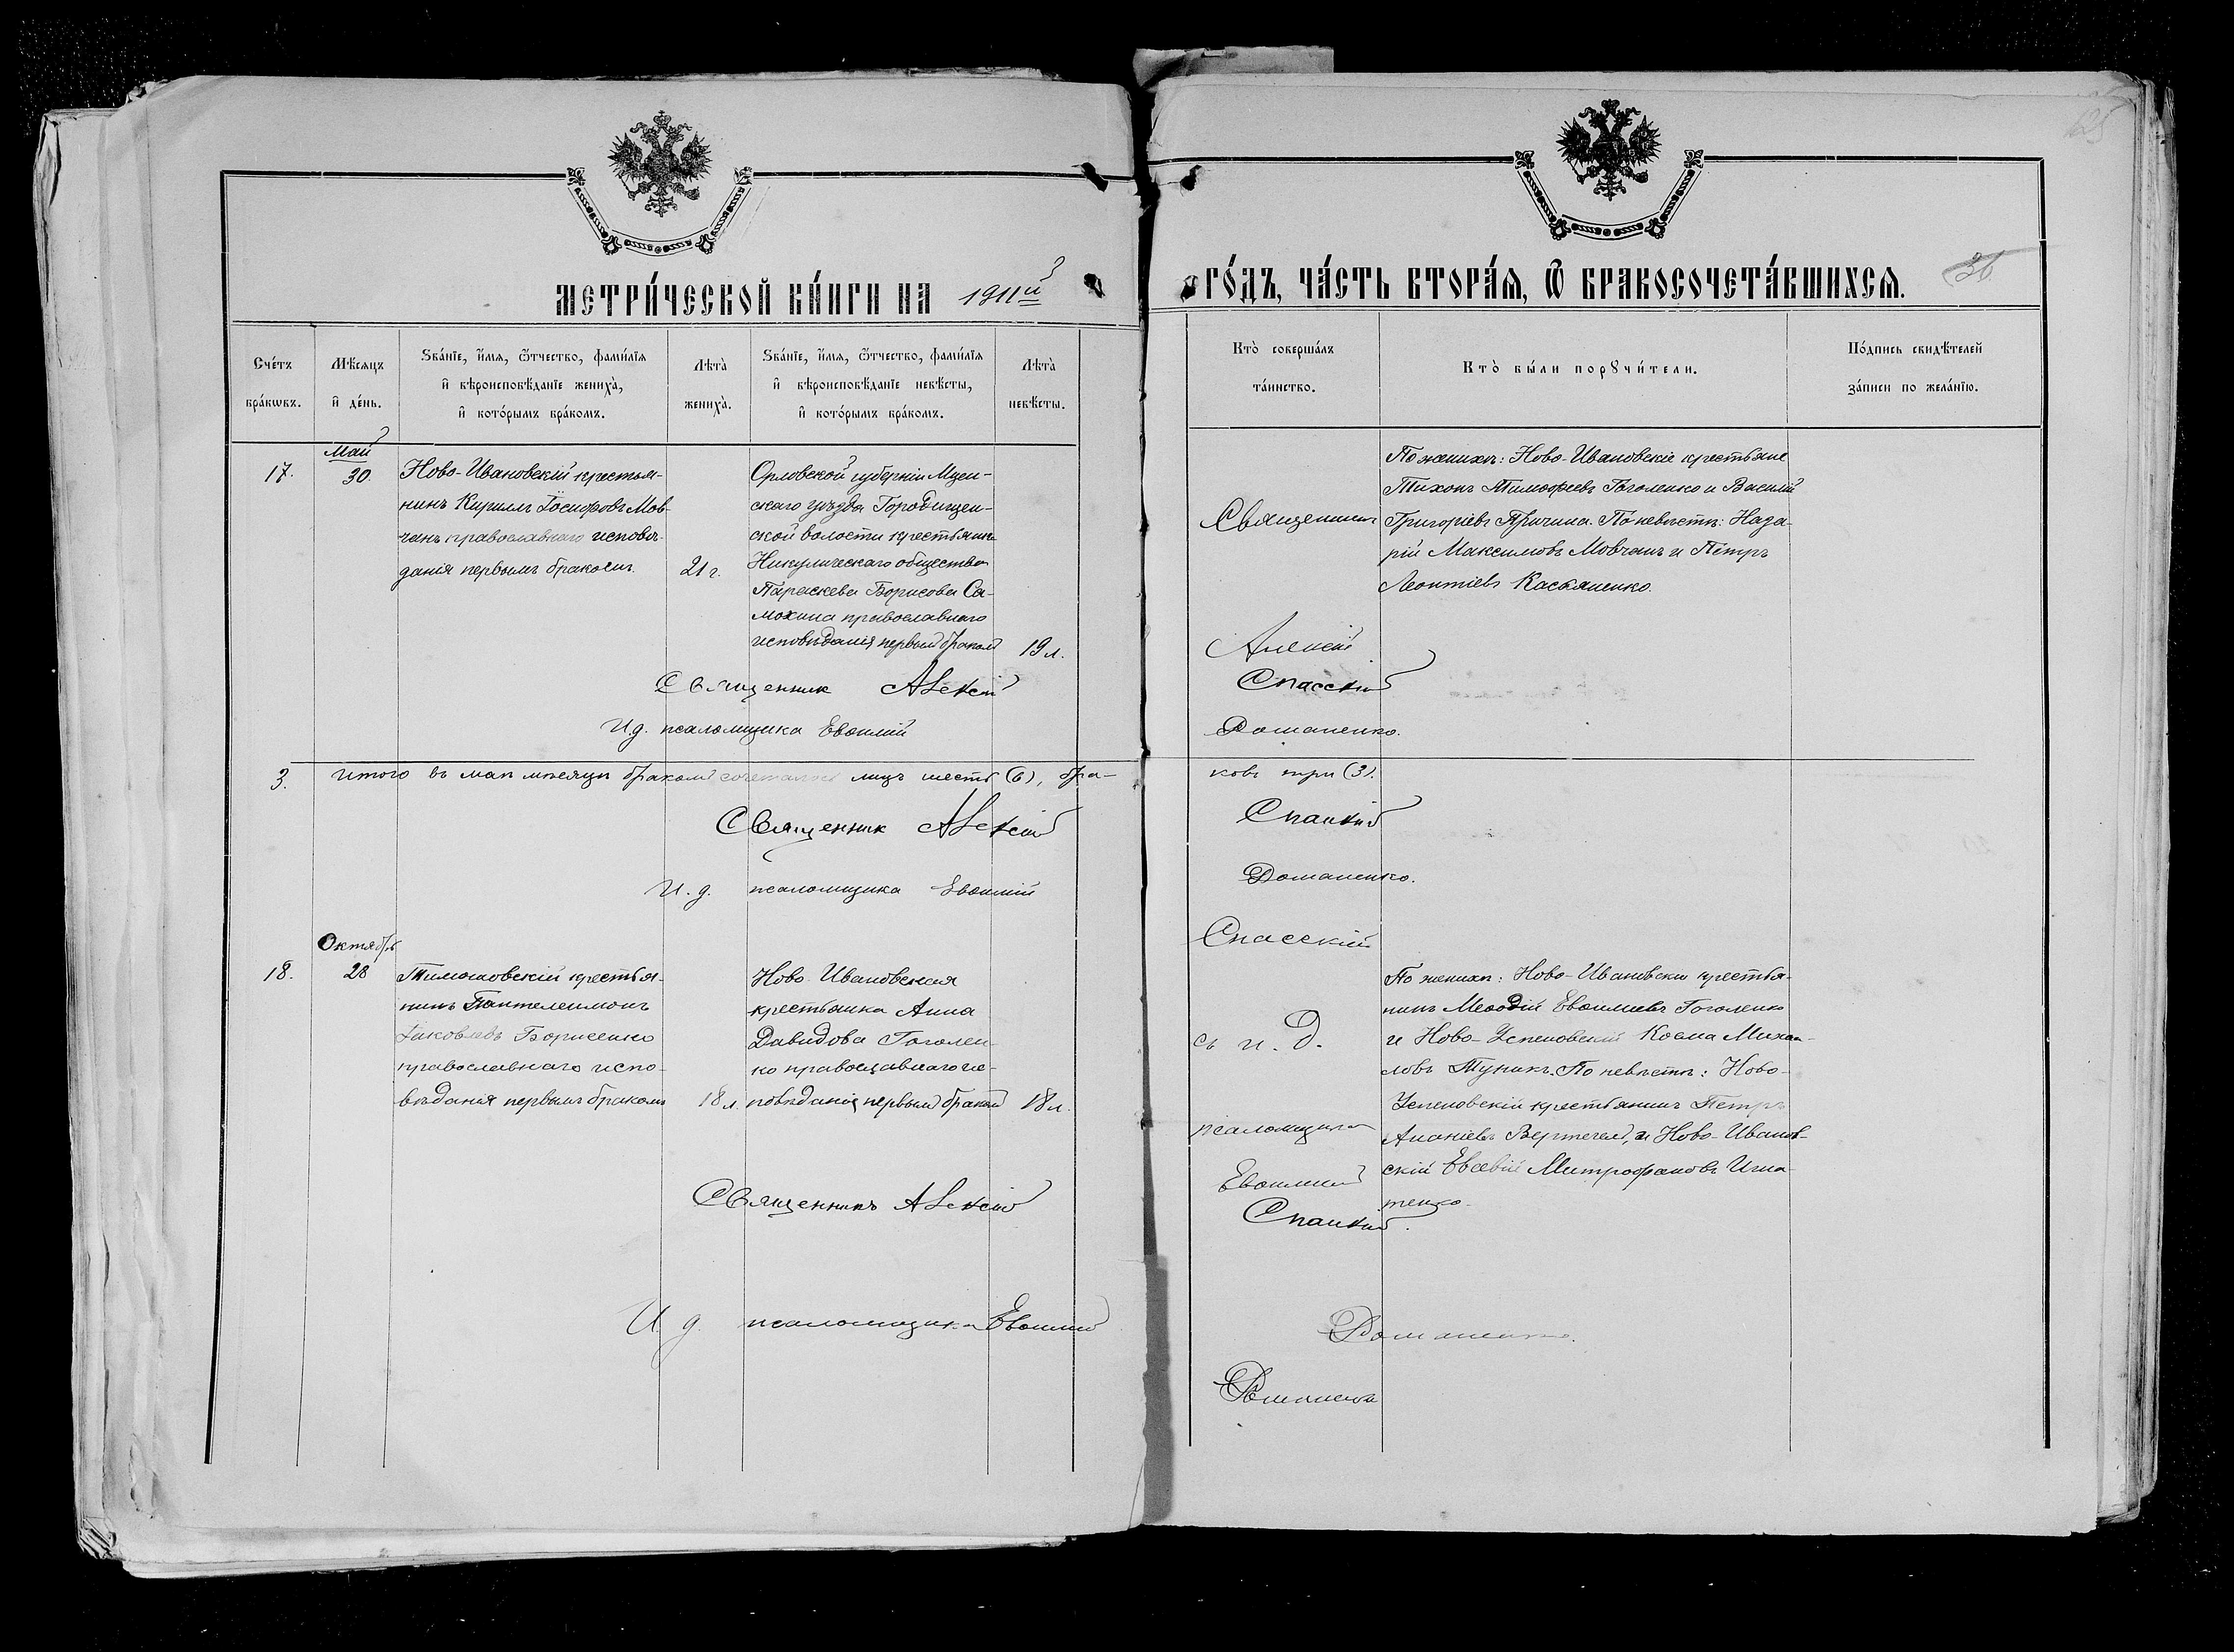 625
МЕТРИ́ЧЕСКОЙ КНИ́ГИ НА 1911й
ГО́ДЪ, ЧА́СТЬ ВТОРА́Я, Ѽ БРАКОСОЧЕТА́ВШИХСЯ.
36
Сче́тъ бра́кѡвъ.
Мѣ́сяцъ и҆ де́нь.
Ѕва́нїе, и҆́мя, ѻ҆́тчество, фами́лїя
и҆ вѣроисповѣ́данїе жениха̀,
и҆ кото́рымъ бра́комъ.
Лѣта̀ жениха̀.
Ѕва́нїе, и҆́мя, ѻ҆́тчество, фами́лїя
и҆ вѣроисповѣ́данїе невѣ́сты,
и҆ кото́рымъ бра́комъ.
Лѣта̀ невѣ́сты.
Кто̀ соверша́лъ та́инство.
Кто̀ бы́ли порꙋчи́тели.
По́дпись свидѣ́телей
за́писи по жела́нїю.
17.
Май
30.
Ново-Ивановскій крестья-
нинъ Кириллъ Іосифовъ Мов-
чанъ православнаго исповѣ-
данія первымъ бракомъ.
21 г.
Орловской губерніи Мцен-
скаго уѣзда Городищен-
ской волости крестьянка
Никулическаго общества
Параскева Борисова Са-
мохина православнаго
исповѣданія первымъ бракомъ
19 л.
Священникъ
Алексій
Спасскій
Доманенко.
По женихѣ: Ново-Ивановскіе крестьяне
Тихонъ Тимофеевъ Гоголенко и Василій
Григоріевъ Причина. По невѣстѣ: Наза-
рій Максимовъ Мовчанъ и Петръ
Леонтіевъ Касьяненко.
Священник Алексій
И. д. псаломщика Евѳимій
3. Итого въ маѣ мѣсяцѣ бракомъ сочеталось лицъ шесть (6), бра-
ковъ три (3).
Священник Алексій
Спасскій
И. д. псаломщика Евѳимій
Доманенко.
18.
Октябрь
28
Тимошовскій крестья-
нинъ Пантелеимонъ
Іаковлевъ Борисенко
православнаго испо-
вѣданія первымъ бракомъ
18 л.
Ново-Ивановская
крестьянка Анна
Давидова Гоголен-
ко православнаго ис-
повѣданія первымъ бракомъ
18 л.
Спасскій
съ и. д.
псаломщика
Евѳимій
Спасскій.
По женихѣ: Ново-Ивановскій крестья-
нинъ Меѳодій Евѳимиевъ Гоголенко
и Ново-Успеновскій Косма Михаи-
ловъ Туникъ. По невѣстѣ: Ново-
Успеновскій крестьянинъ Петръ
Ананіевъ Вертегел, и Ново-Иванов-
скій Евсевій Митрофановъ Игна-
тенко.
Священникъ Алексій
И. д. псаломщика Евѳимій
Доманенко.
Доманенко